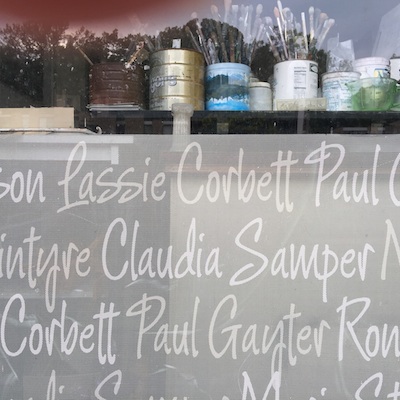 son Lassie Corbett Paul G
intyre Claudia Samper M
Corbett Paul Gayter Ron
Samper Maria St